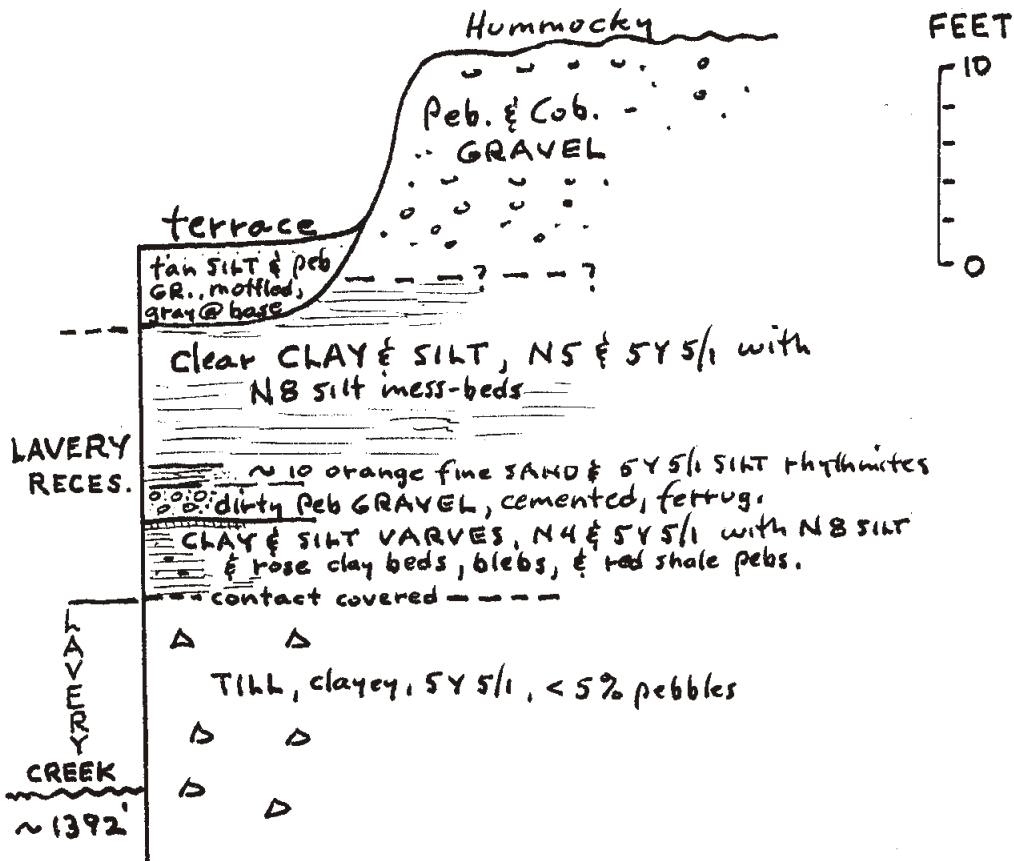 Hummocky
FEET
10
Peb. & Cob.
GRAVEL
terrace
tan SILT & peb
GR., mottled,
gray @ base
? ?
0
Clear CLAY & SILT, N5 & 5Y 5/1 with
N8 silt mess-beds
LAVERY
RECES.
~ 10 orange fine SAND & 5Y 5/1 SILT rhythmites
dirty Peb GRAVEL, cemented, ferrug.
CLAY & SILT VARVES, N4 & 5Y 5/1 with N8 SILT
& rose clay beds, blebs, & red shale pebs.
contact covered
LAVERY
TILL, clayey, 5Y 5/1, < 5% pebbles
CREEK
~ 1392'